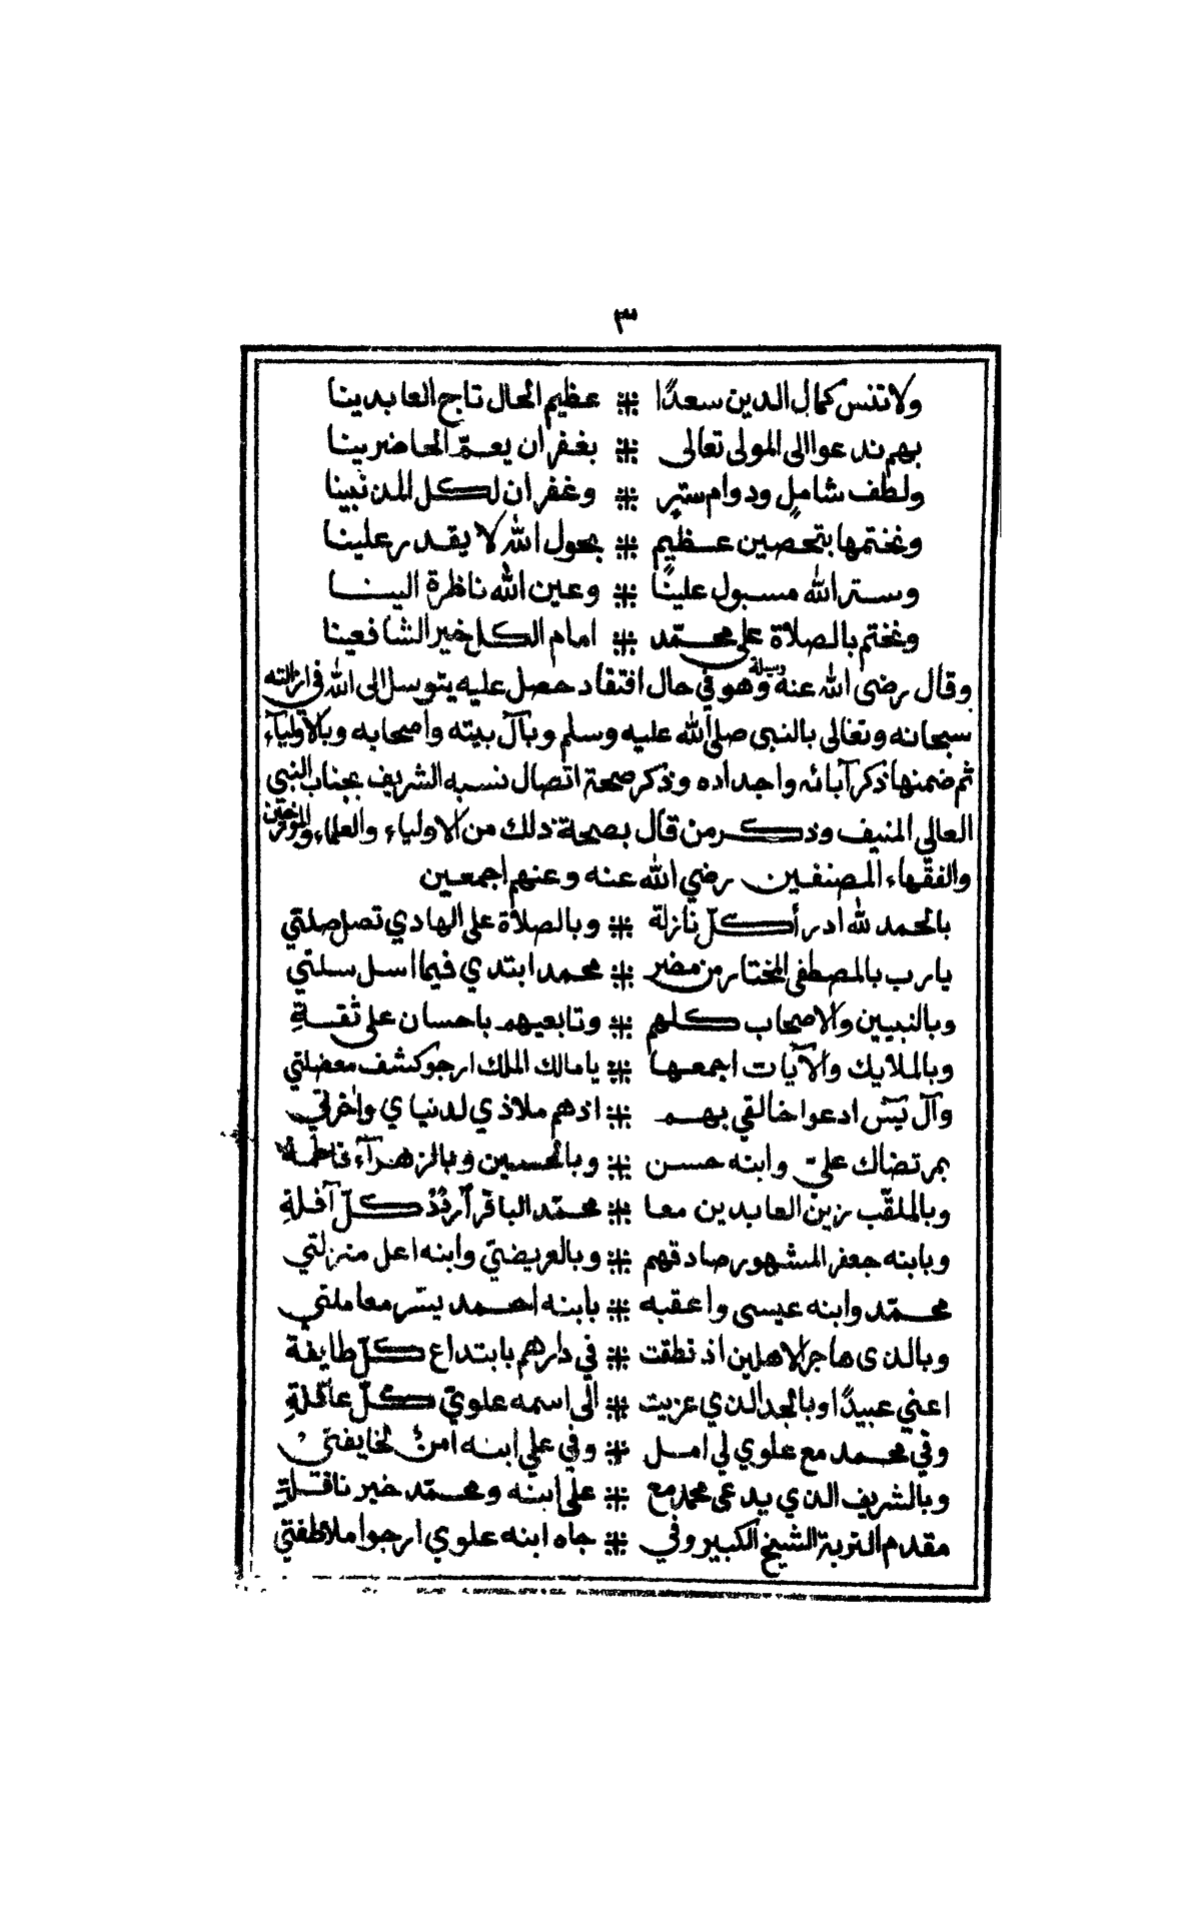 ٣
ولا تنس كمال الدين سعدًا ❊ عظيم الحال تاج العابدينا
بهم ندعوا الى المولى تعالى ❊ بغفران يعمّ الحاضرينا
ولطف شاملٍ ودوام سترٍ ❊ وغفران لكل المذنبينا
ونختمها بتحصين عظيمٍ ❊ بحول الله لا يقدر علينا
وستر الله مسبول علينًا ❊ وعين الله ناظرة الينا
ونختم بالصلاة على محمّد ❊ امام الكل خير الشافعينا
وقال رضى الله عنه وسيلة وهو في حال افتقاد حصل عليه يتوسل الى الله في ازالته
سبحانه وتعالى بالنبى صلى الله عليه وسلم وبآل بيته واصحابه وبالاولياء
ثم ضمنها ذكر آبائه واجداده وذكر صحة اتصال نسبه الشريف بجناب النبي
العالي المنيف وذكر من قال بصحة ذلك من الاولياء والعلماء والمؤرخين
والفقهاء المصنفين رضي الله عنه وعنهم اجمعين
بالحمد لله أدرأ كلّ نازلة ❊ وبالصلاة على الهادي تصل صلتي
يارب بالمصطفى المختار من مضر ❊ محمد ابتدي فيما اسل سلتي
وبالنبيين والاصحاب كلهم ❊ وتابعيهم باحسان على ثقةِ
وبالملايك والآيات اجمعها ❊ يامالك الملك ارجو كشف معضلتي
وآل يٓس ادعوا خالقي بهم ❊ اذهم ملاذي لدنياي واخرتي
بمرتضاك عليّ وابنه حسن ❊ وبالحسين وبالزهرآء فاطمة
وبالملقّب زين العابدين معا ❊ محمّد الباقر اردُدْ كلّ آفلةِ
وبابنه جعفر المشهور صادقهم ❊ وبالعريضيّ وابنه اعل منزلتي
محمّد وابنه عيسى واعقبه ❊ بابنه احمد يسّر معاملتي
وبالذى هاجر الاهلين اذ نطقت ❊ في دارهم بابتداع كلّ طايفة
اعني عبيدًا وبالجد الذي عزيت ❊ الى اسمه علويّ كلّ عاقلةِ
وفي محمد مع علوي لي امل ❊ وفي علي ابنه امنٌ لخايفتي
وبالشريف الذي يدعى محمد مع ❊ على ابنه ومحمّد خير ناقلةِ
مقدم التربة الشيخ الكبير وفي ❊ جاه ابنه علوي ارجوا ملاطفتي